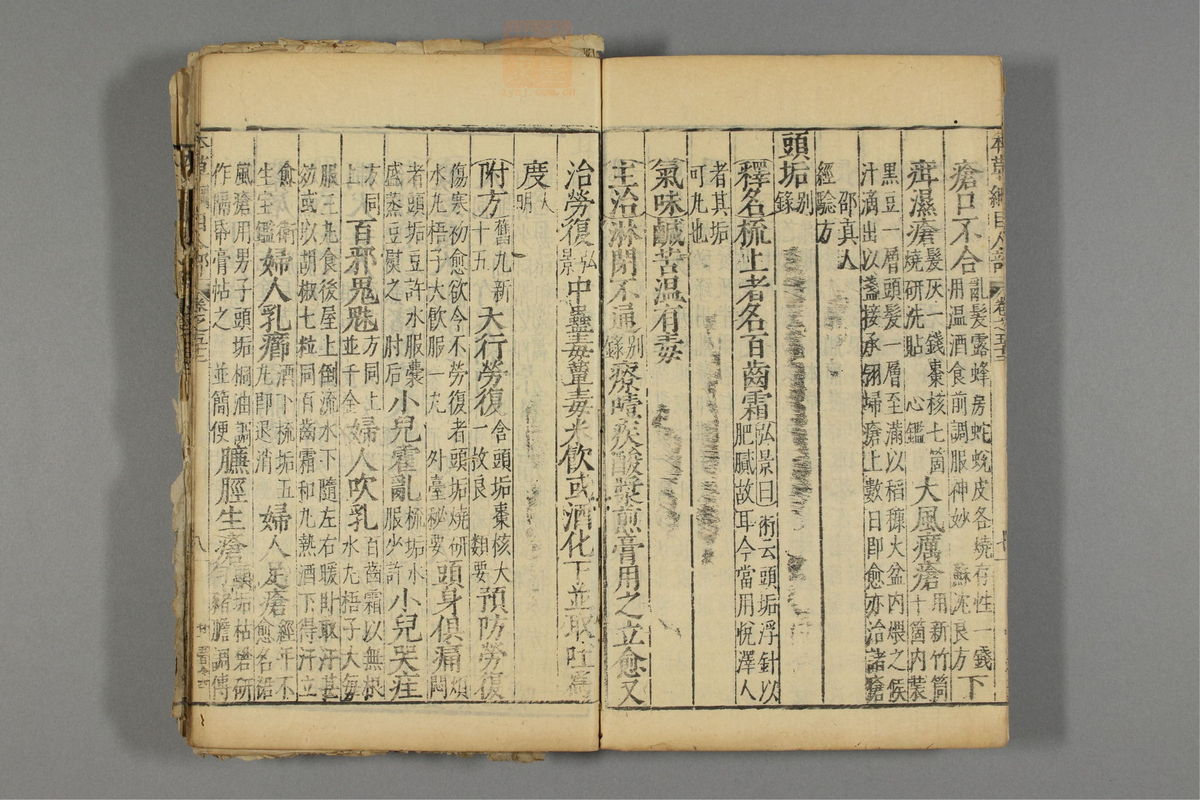 瘡口不合亂髮露蜂房蛇蛻皮各燒存性一錢下
用溫酒食前調服神妙 蘇沈良方
疳濕瘡髮灰一錢棗核七箇
燒研洗貼 心鑑
大風癘瘡用新竹筒
十箇內裝
黑豆一層頭髮一層至滿以稻糠火盆內煨之候
汁滴出以盞接承翎掃瘡上數日即愈亦治諸瘡
邵真人
經驗方
頭垢別
錄
釋名梳上者名百齒霜弘景曰術云頭垢浮針以
肥膩故耳今當用悅澤人
者其垢
可丸也
氣味鹹苦溫有毒
主治淋閉不通別
錄
療噎疾酸漿煎膏用之立愈又
治勞復弘
景
中蠱毒蕈毒米飲或酒化下並取吐為
度大
明
附方舊九新
十五
大行勞復含頭垢棗核大
一枚良 類要
預防勞復
傷寒初愈欲令不勞復者頭垢燒研
水丸梧子大飲服一丸 外臺秘要
頭身俱痛煩
悶
者頭垢豆許水服囊
盛蒸豆熨之 肘后
小兒霍亂梳垢水
服少許
小兒哭疰
方同
上
百邪鬼魅方同上
並千金
婦人吹乳百齒霜以無根
水丸梧子大每
服三丸食後屋上倒流水下隨左右暖臥取汗甚
效或以胡椒七粒同百齒霜和丸熱酒下得汗立
愈 衛
生寶鑑
婦人乳癤酒下梳垢五
丸即退消
婦人足瘡經年不
愈名裙
風瘡用男子頭垢桐油調
作隔帋膏帖之 並簡便
臁脛生瘡頭垢枯礬研
勻豬膽調傅